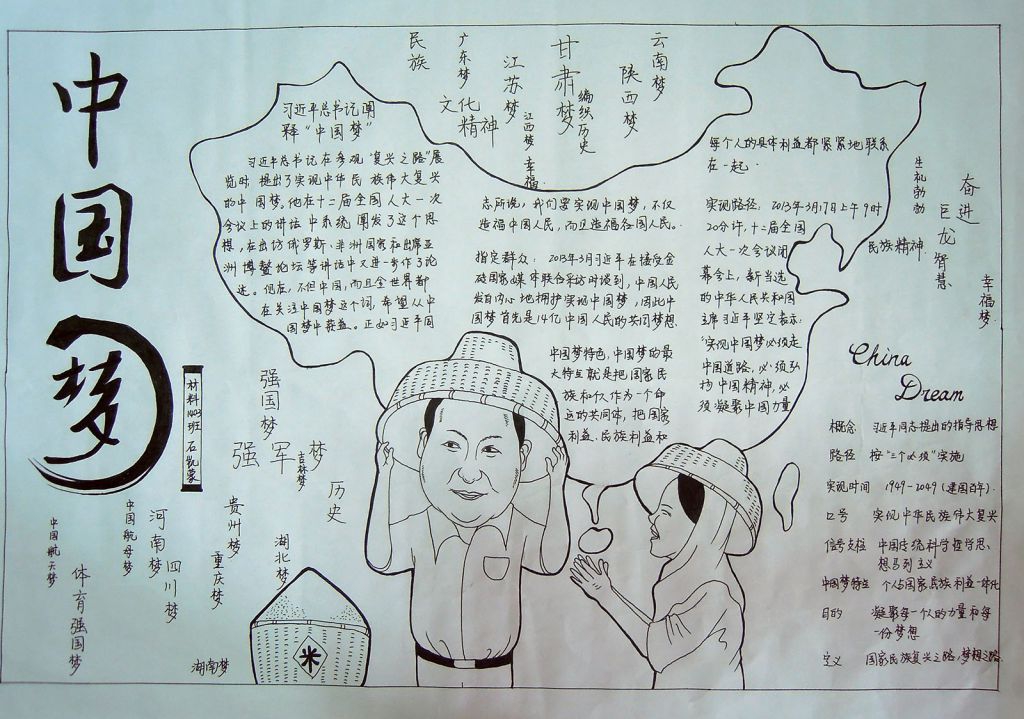 中国梦
材料1403班
民族
广东梦
文化
精神
江苏梦
江西梦
幸福
甘肃梦
编织历史
陕西梦
云南梦
习近平总书记阐
释“中国梦”
习近平总书记在参观“复兴之路”展
览时提出了实现中华民族伟大复兴
的中国梦,他在十二届全国人大一次
会议上的讲话中系统阐发了这个思
想,在出访俄罗斯、非洲国家和出席亚
洲博鳌论坛等讲话中又进一步作了论
述。
不但中国,而且全世界都
在关注中国梦这个词,希望从中
国梦中获益。正如习近平同
志所说,我们要实现中国梦,不仅
造福中国人民,而且造福各国人民。
指定群众:2013年3月习近平在接受金
砖国家媒体联合采访时谈到,中国人民
发自内心地拥护实现中国梦,因此中
国梦首先是14亿中国人民的共同梦想
中国梦特色,中国梦的最
大特点就是把国家民
族和个人作为一个命
运的共同体,把国家
利益、民族利益和
每个人的具体利益都紧紧地联系
在一起.
实现路径:2013年3月17日上午9时
20分许,十二届全国
人大一次会议闭
幕会上,新当选
的中华人民共和国
主席习近平坚定表示:
“实现中国梦必须走
中国道路,必须弘
扬中国精神,必
须凝聚中国力量
生机勃勃
奋进
巨龙
智慧
民族精神
幸福梦
China
Dream
概念 习近平同志提出的指导思想
路径 按“三个必须”实施
实现时间 1949-2049(建国百年).
口号 实现中华民族伟大复兴
中国传统科学哲学思、
想马列主义
中国梦特色 个人与国家民族利益一体化
目的 凝聚每一个人的力量和每
一份梦想
定义 国家民族复兴之路,梦想之路
强国梦
强军梦
吉林梦
历史
贵州梦
重庆梦
湖北梦
河南梦
四川梦
中国航母梦
中国航天梦
体育强国梦
湖南梦
米